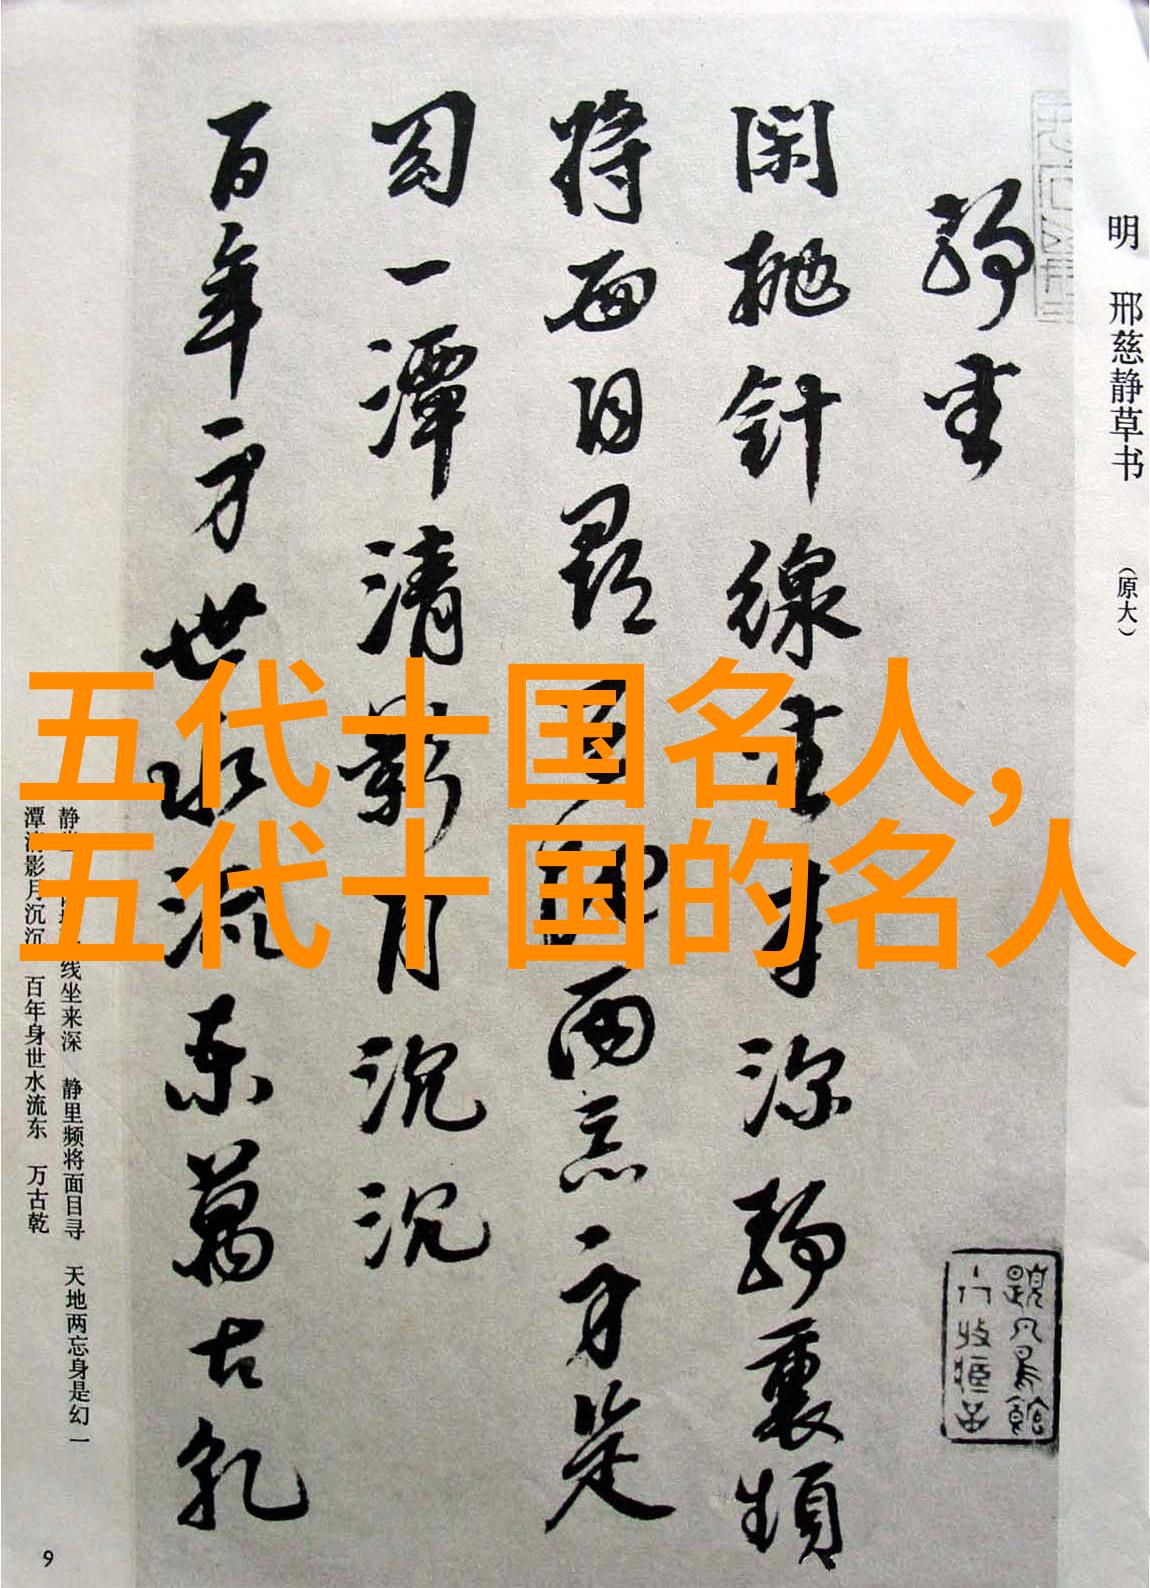 明 邢慈静草书 (原大)
静坐
闲抛针線坐来深静裏频
将面目尋天地两忘身是
幻一潭清影月沉沉
百年身世水流东萬古乾
五代十国名人,
五代十国的名人
线坐来深 静里频将面目寻 天地两忘身是幻 一
潭清影月沉沉 百年身世水流东 万古乾
9